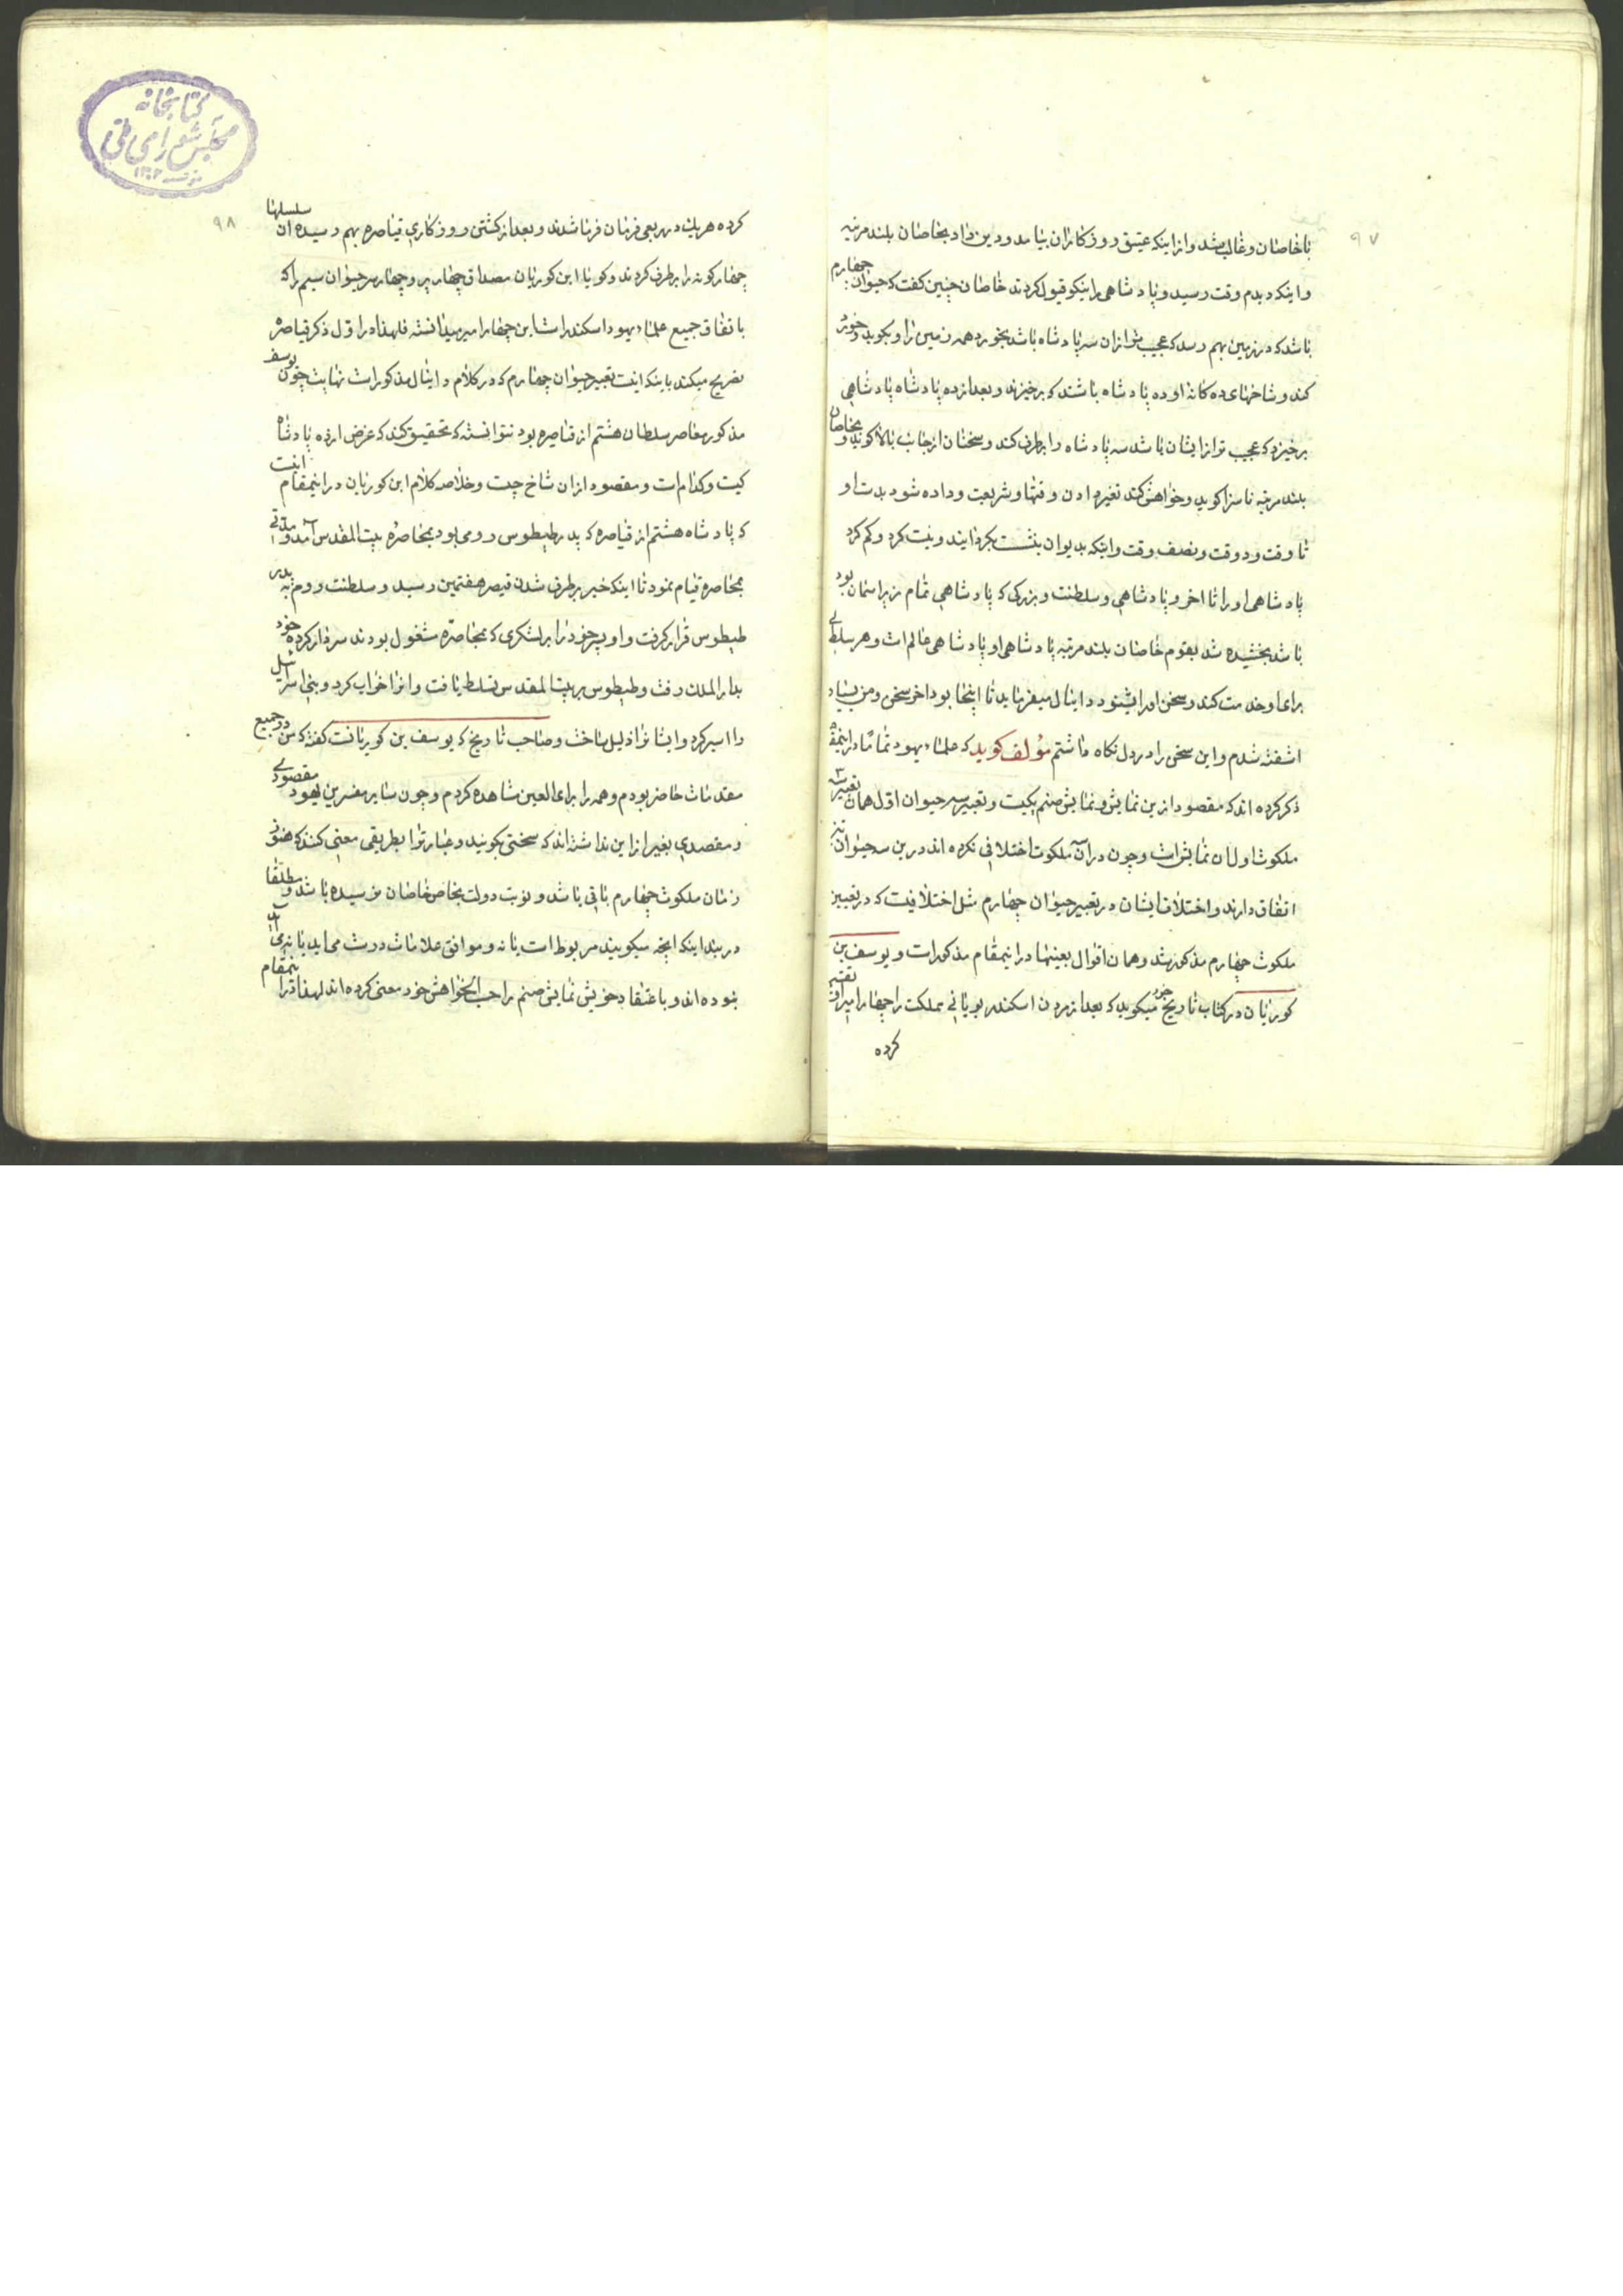 ۹۷
با خاصان و غالب شد و از اینکه عتیق روزکاران بیامد و دین داد بخاصان بلند مرتبه
و اینکه دیدم وقت رسید و پادشاهی را نیکو قبول کردند خاصان چنین کفت که حیوان چهارم
باشد که در زمین بهم رسد که عجیب تر از ان سه پادشاه باشد بخورد همه زمین را و بکوبد و خورد
کند و شاخهای ده کانه او ده پادشاه باشند که برخیزند و بعد از ده پادشاه پادشاهی
برخیزد که عجیب تر از ایشان باشد سه پادشاه را برطرف کند و سخنان از جانب بالا کوید و بخاصان
بلند مرتبه ناسزا کوید و خواهش کند تغیر دادن وقتها و شریعت و داده شود بدست او
تا وقت و دو وقت و نصف وقت و اینکه بدیوان بنشست بکردانند و نیت کرد و کم کرد
پادشاهی او را تا اخر و پادشاهی و سلطنت و بزرکی که پادشاهی تمام زیر اسمان بود
باشد بخشیده شد بقوم خاصان بلند مرتبه پادشاهی او پادشاهی عالم است و هر سلطانی
برای او خدمت کند و سخن او را بشنود دانیال میفرماید تا اینجا بود اخر سخن و من بسیار
اشفته شدم و این سخن را در دل نکاه داشتم مؤلف کوید که علماء یهود تماما در اینمقام
ذکر کرده اند که مقصود ازین نمایش و نمایش صنم یکیست و تعبیر سه حیوان اول همان تعبیر سه
ملکوت اول ان نمایش است و چون در ان سه ملکوت اختلافی نکرده اند درین سه حیوان نیز
اتفاق دارند و اختلاف ایشان در تعبیر حیوان چهارم مثل اختلافیست که در تعبیر
ملکوت چهارم مذکور شد و همان اقوال بعینها در اینمقام مذکور است و یوسف بن
کوریان در کتاب تاریخ خود میکوید که بعد از مردن اسکندر یونانی مملکت را چهار امیر او تقسیم
کرده
۹۸
کرده هریک در ربعی فرمان فرما شدند و بعد از کشتن روزکاری قیاصره بهم رسیده ان سلسلها
چهارکونه را برطرف کردند و کویا ابن کوریان مصداق چهار پر و چهار سر حیوان سیم را که
باتفاق جمیع علماء یهود اسکندر است این چهار امیر میدانسته فلهذا در اول ذکر قیاصره
تصریح میکند باینکه اینست تعبیر حیوان چهارم که در کلام دانیال مذکور است نهایت چون یوسف
مذکور معاصر سلطان هشتم از قیاصره بود نتوانسته که تحقیق کند که غرض از ده پادشاه
کیست و کدام است و مقصود از ان شاخ چیست و خلاصه کلام ابن کوریان در اینمقام اینست
که پادشاه هشتم از قیاصره که پدر طیطوس رومی بود بمحاصره بیت المقدس آمد و مدتی
بمحاصره قیام نمود تا اینکه خبر برطرف شدن قیصر هفتمین رسید و سلطنت روم به پدر
طیطوس قرار کرفت و او پسر خود را بر لشکری که بمحاصره مشغول بودند سردار کرده خود
بدار الملک رفت و طیطوس بر بیت المقدس تسلط یافت و انرا خراب کرد و بنی اسرائیل
را اسیر کرد و ایشانرا ذلیل ساخت و صاحب تاریخ که یوسف بن کوریانست کفته که من در جمیع
مقدمات حاضر بودم و همه را برای العین مشاهده کردم و چون سایر مفسرین یهود مقصودی
و مقصدی بغیر از این نداشته اند که سخنی بکویند و عبارترا بطریقی معنی کنند که هنوز
زمان ملکوت چهارم باقی باشد و نوبت دولت بخاص خاصان نرسیده باشد و مطلقا
در بند اینکه انچه میکویند مربوط است یا نه و موافق علامات درست می اید یا نمی اید
نبوده اند و باعتقاد خویش نمایش صنم را حسب الخواهش خود معنی کرده اند لهذا در اینمقام
کتابخانه
مجلس شورای ملی